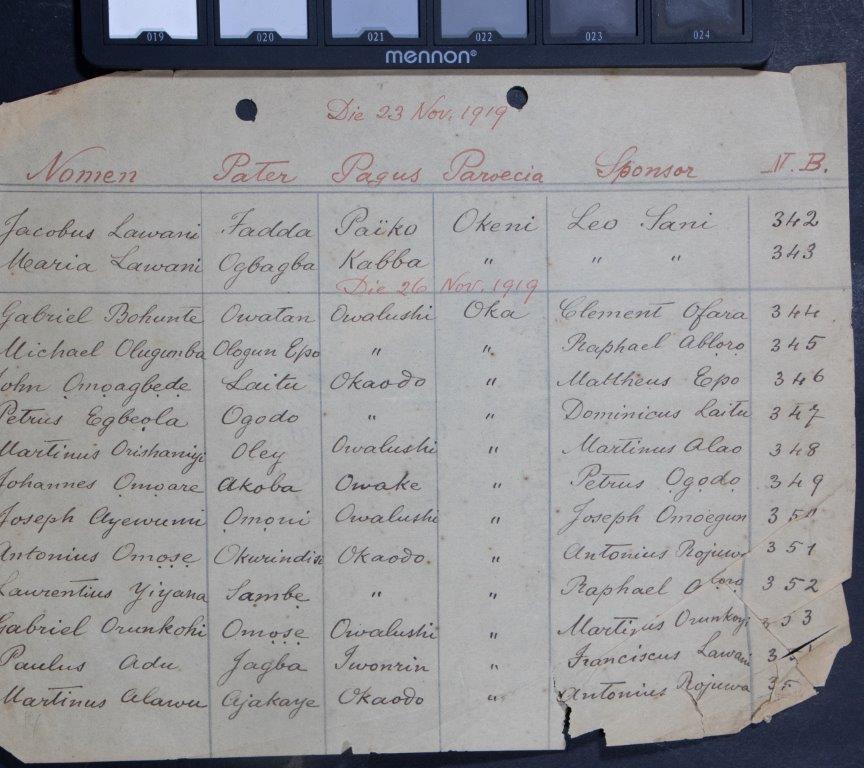 019 020 021 022 023 024
mennon®
Die 23 Nov. 1919
Nomen Pater Pagus Paroecia Sponsor N. B.
Jacobus Lawani Fadda Païko Okeni Leo Sani 342
Maria Lawani Ogbagba Kabba " " " 343
Die 26 Nov. 1919
Gabriel Bohunte Owatan Owalushi Oka Clement Ofara 344
Michael Olugunba Ologun Epo " " Raphael Abloro 345
John Ọmọagbẹdẹ Laitu Okaodo " Mattheus Epo 346
Petrus Egbeọla Ogodo " " Dominicus Laitu 347
Martinus Orishaniyi Oley Owalushi " Martinus Alao 348
Johannes Ọmọare Akoba Owake " Petrus Ọgọdọ 349
Joseph Ayewumi Ọmọni Owalushi " Joseph Omoegun 350
Antonius Omọsẹ Okurindise Okaodo " Antonius Rojuwa 351
Laurentius Yiyana Sambẹ " " Raphael 352
Gabriel Orunkohi Omọsẹ Owalushi " Martinus Orunkoyi 353
Paulus Adu Jagba Iwonrin " Franciscus Lawani
Martinus Alawu Ajakaye Okaodo " Antonius Rojuwa